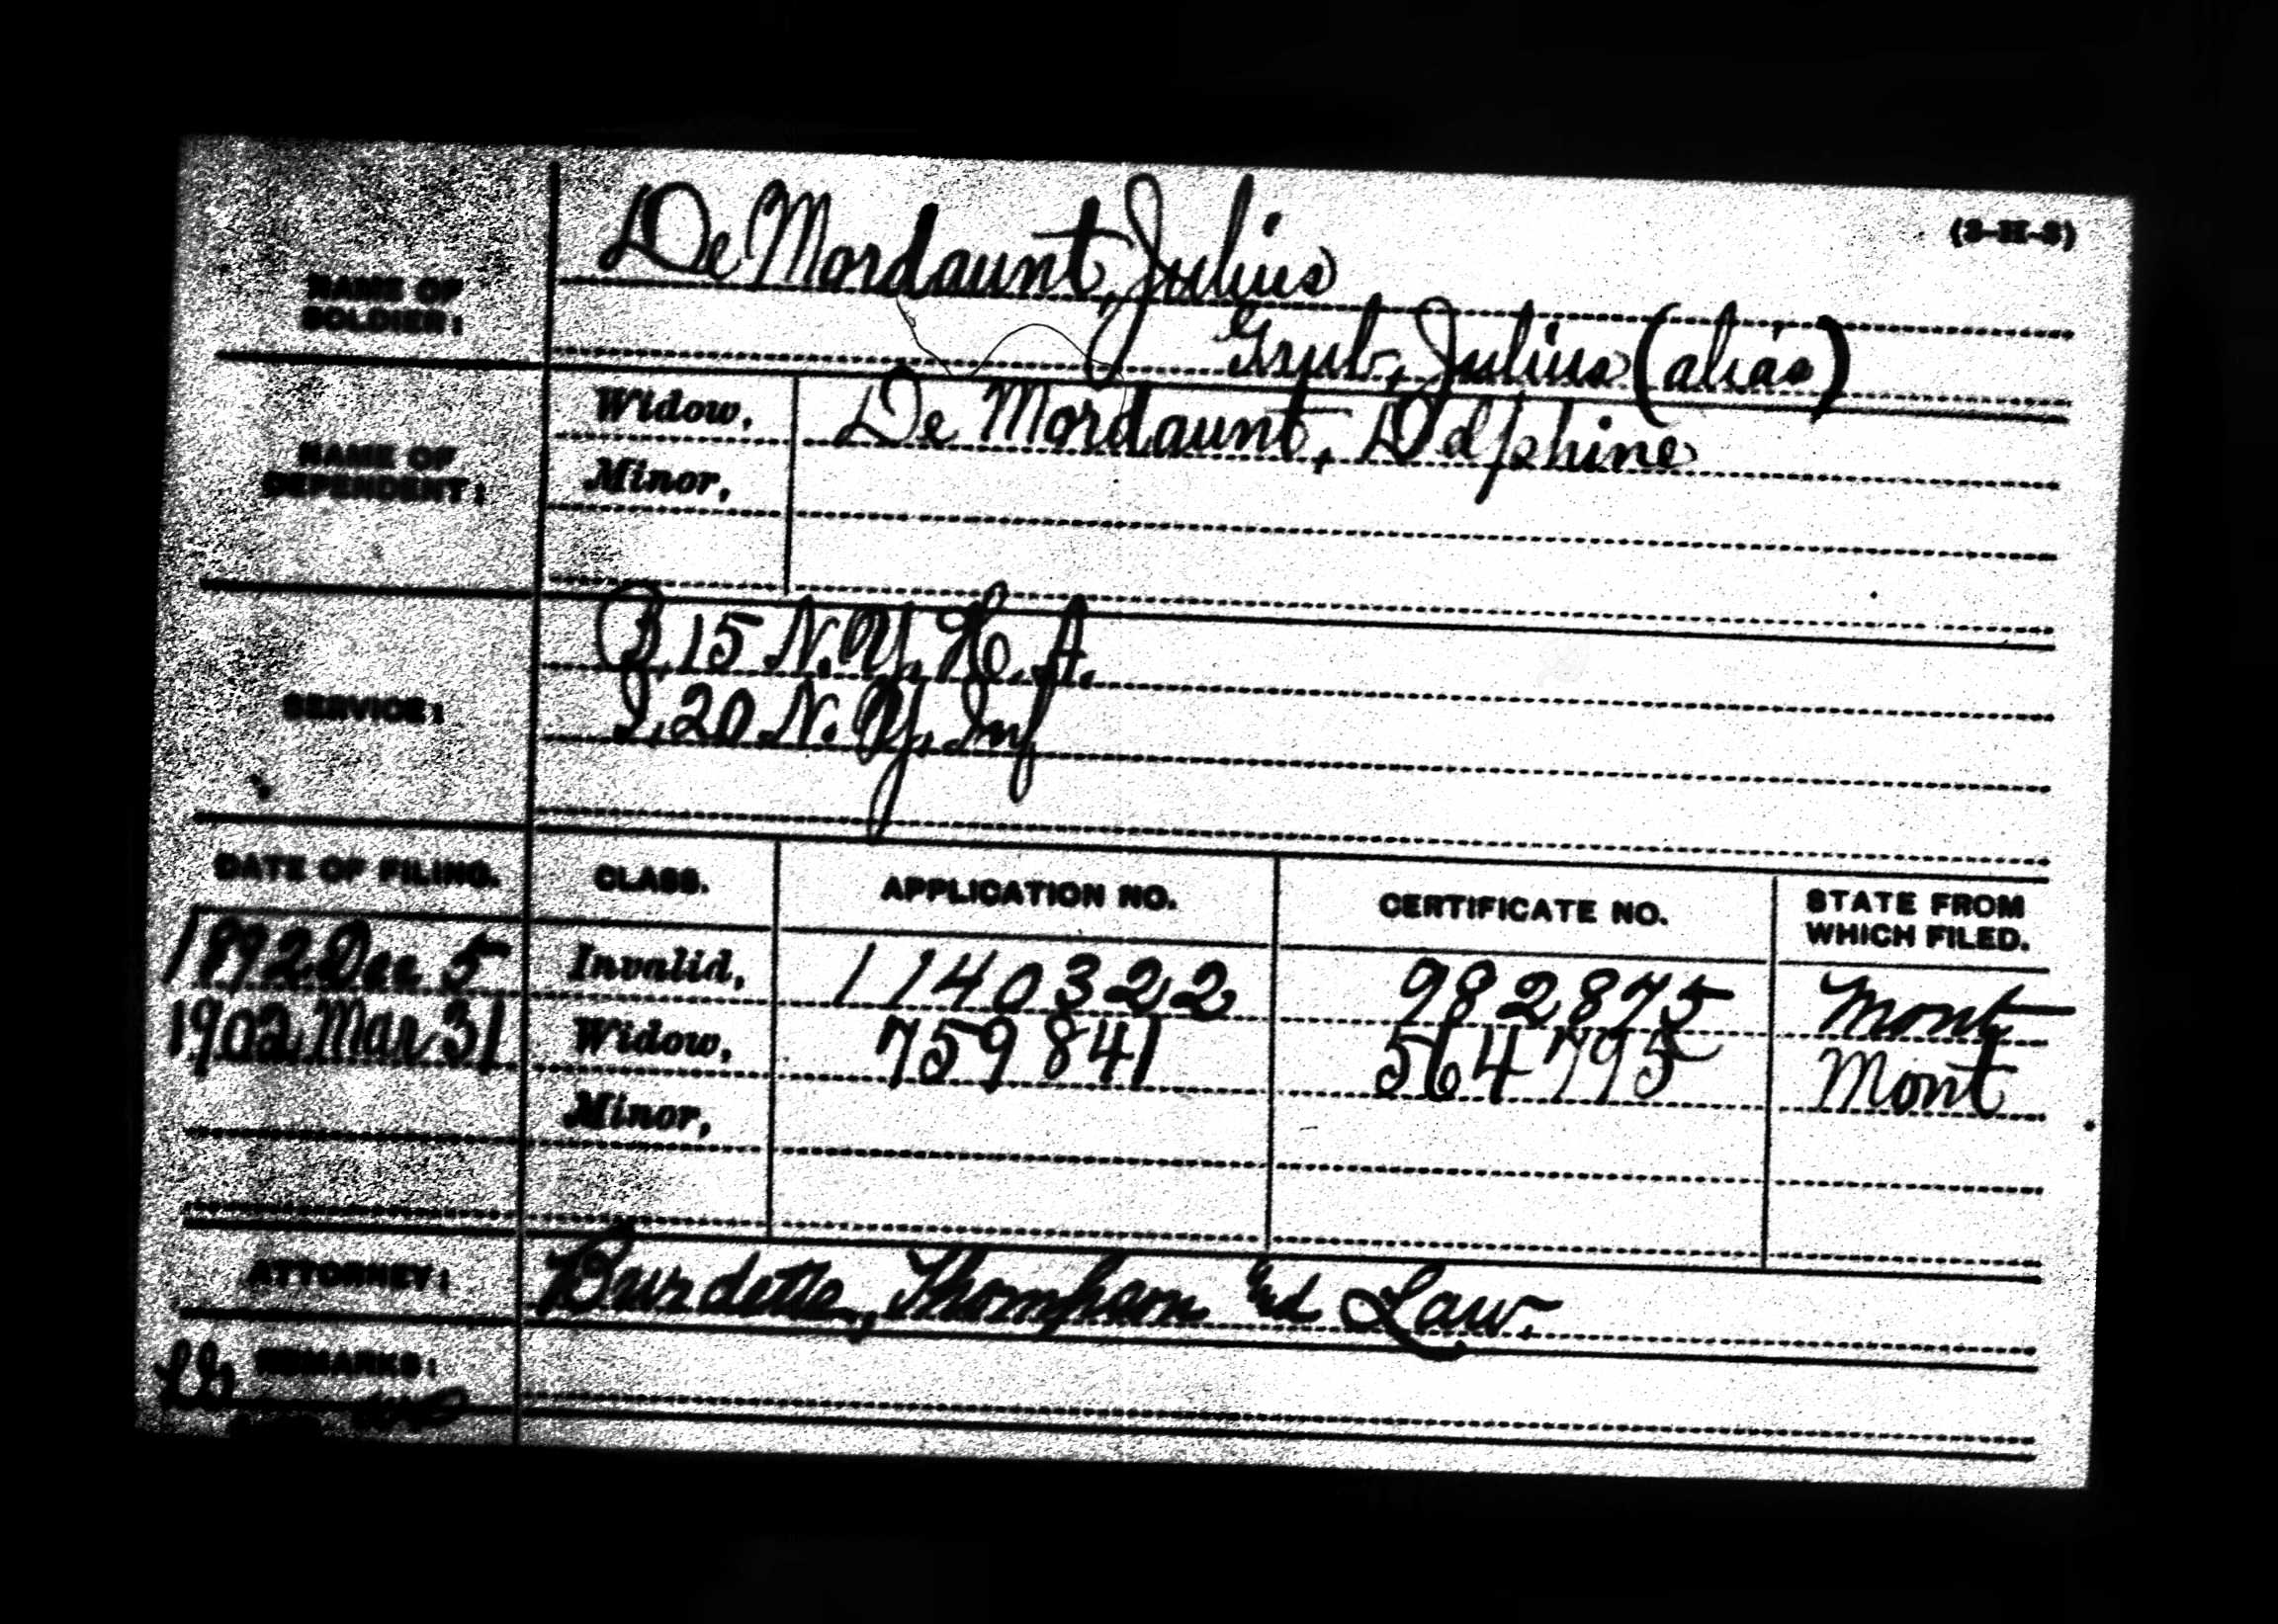 (3-H-3)
NAME OF SOLDIER: De Mordaunt, Julius
Grub, Julius (alias)
NAME OF DEPENDENT: Widow, De Mordaunt, Delphine
Minor,
SERVICE: B, 15 N.Y. H.A.
I, 20 N.Y. Inf
DATE OF FILING. CLASS. APPLICATION NO. CERTIFICATE NO. STATE FROM WHICH FILED.
1892 Dec 5 Invalid, 1140322 982875 Mont
1902 Mar 31 Widow, 759841 564795 Mont
Minor,
ATTORNEY: Burdette, Thompson and Law.
REMARKS: